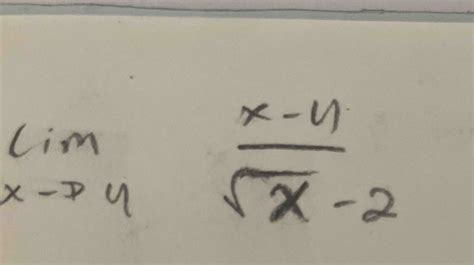 lim x-4
x→4 √x-2